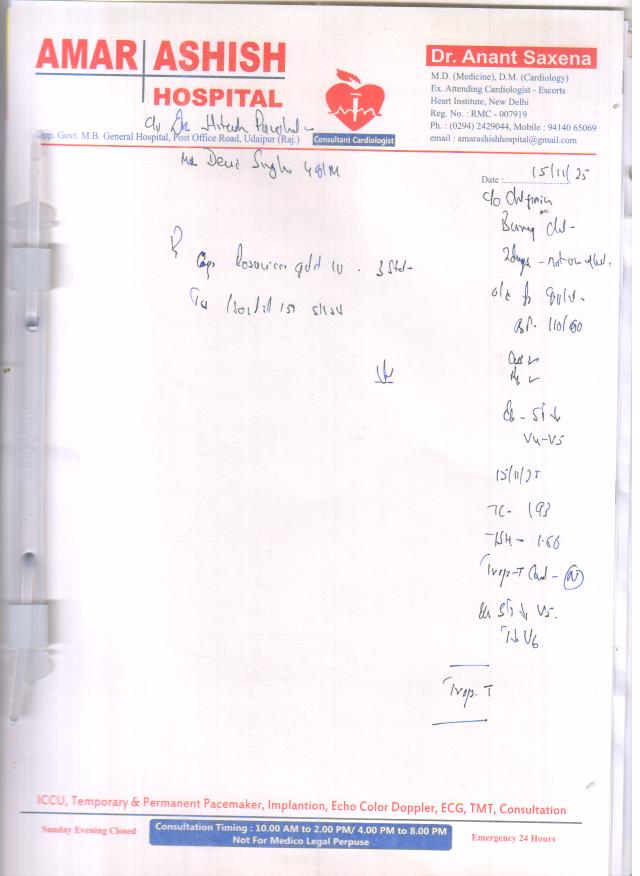 AMAR ASHISH
HOSPITAL
Opp. Govt. M.B. General Hospital, Post Office Road, Udaipur (Raj.)
Consultant Cardiologist
Dr. Anant Saxena
M.D. (Medicine), D.M. (Cardiology)
Ex. Attending Cardiologist - Escorts
Heart Institute, New Delhi
Reg. No. : RMC - 007919
Ph. : (0294) 2429044, Mobile : 94140 65069
email : amarashishhospital@gmail.com
c/o Dr. Hitesh
Mr Devi Singh
Date : 15/11/25
c/o
2 days - not on
BP. 110/80
ST ↓
V4-V5
R
Cap 10
15/11/25
TC- 193
TSH - 1.66
Trop-T Card - (N)
ST ↓ V5.
V6
Trop-T
ICCU, Temporary & Permanent Pacemaker, Implantion, Echo Color Doppler, ECG, TMT, Consultation
Sunday Evening Closed
Consultation Timing : 10.00 AM to 2.00 PM/ 4.00 PM to 8.00 PM
Not For Medico Legal Perpuse
Emergency 24 Hours